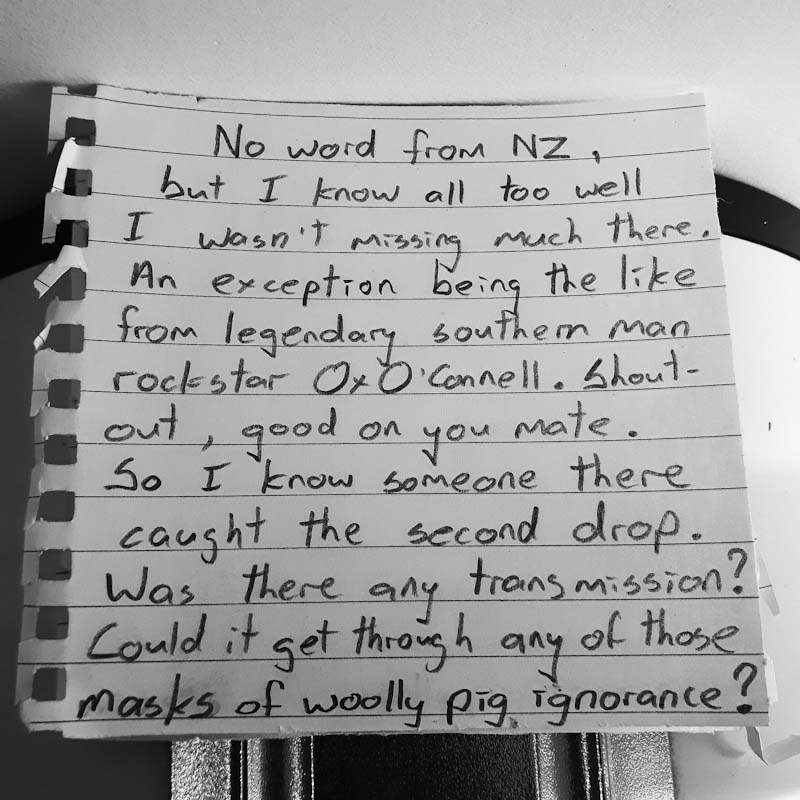 No word from NZ,
but I know all too well
I wasn't missing much there.
An exception being the like
from legendary southern man
rockstar Ox O'Connell. Shout-
out, good on you mate.
So I know someone there
caught the second drop.
Was there any transmission?
Could it get through any of those
masks of woolly pig ignorance?